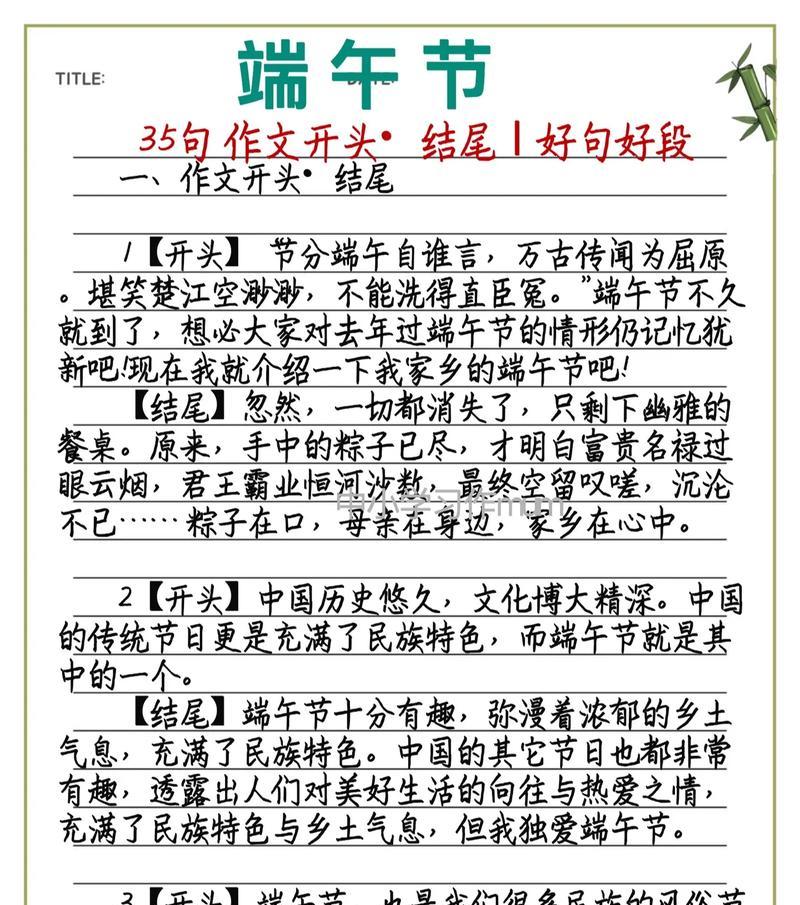 TITLE:
端午节
35句 作文开头•结尾|好句好段
一、作文开头•结尾
1【开头】 节分端午自谁言，万古传闻为屈原
。堪笑楚江空渺渺，不能洗得直臣冤。”端午节不久
就到了，想必大家对去年过端午节的情形仍记忆犹
新吧!现在我就介绍一下我家乡的端午节吧!
【结尾】忽然，一切都消失了，只剩下幽雅的
餐桌。原来，手中的粽子已尽，才明白富贵名禄过
眼云烟，君王霸业恒河沙数，最终空留叹嗟，沉沦
中小学习作mum
不已……粽子在口，母亲在身边，家乡在心中。
2【开头】中国历史悠久，文化博大精深。中国
的传统节日更是充满了民族特色，而端午节就是其
中的一个。
【结尾】端午节十分有趣，弥漫着浓郁的乡土
气息，充满了民族特色。中国的其它节日也都非常
有趣，透露出人们对美好生活的向往与热爱之情，
充满了民族特色与乡土气息，但我独爱端午节。
3【开头】端午节，也是我们很多民族的风俗节